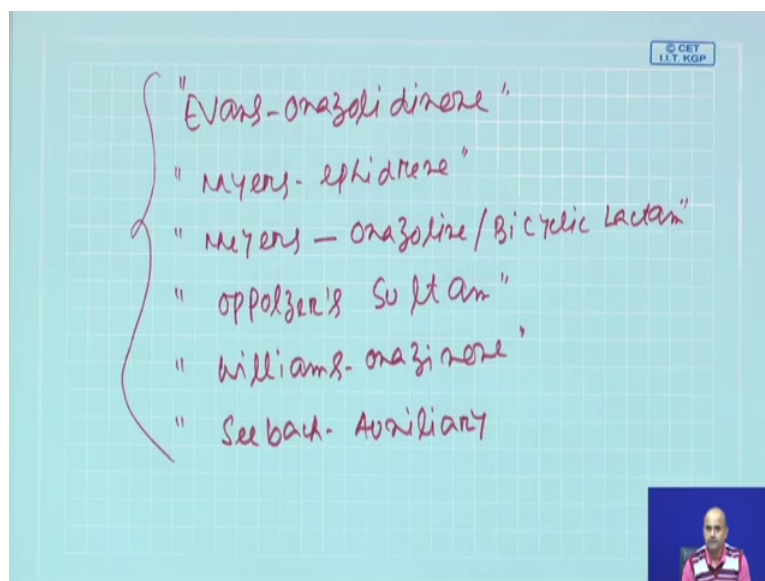 © CET
I.I.T. KGP
"Evans-oxazolidinone"
"Myers-ephidrene"
"Meyers - oxazoline/Bicyclic Lactam"
"Oppolzer's Sultam"
"Williams-oxazinone"
" Seebach- Auxiliary